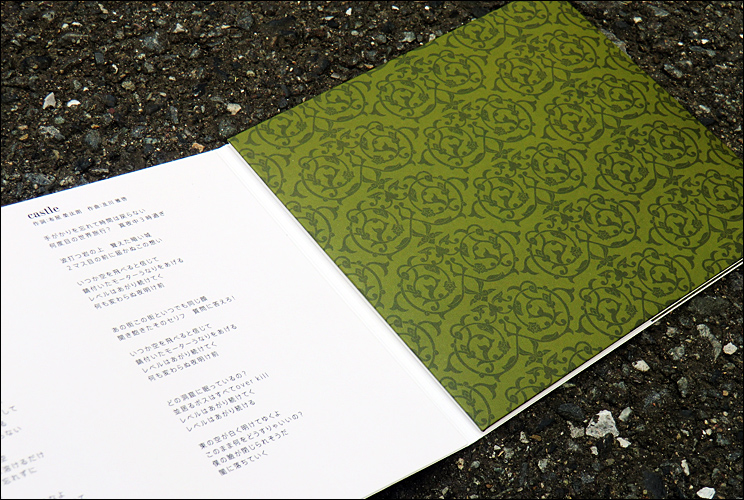 castle
作詞・有尾 愛注周 作曲・及川 雅彦
手がかりを忘れて時間は戻らない
何度目の世界旅行？ 真夜中3時過ぎ
波打つ岩の上 聳えた暗い城
2マス目の前に届かぬこの想い
いつか空を飛べると信じて
錆付いたモーターうなりをあげる
レベルはあがり続けてく
何も変わらぬ夜明け前
あの街この街といつでも同じ顔
聞き飽きたそのセリフ 質問に答えろ!
いつか空を飛べると信じて
錆付いたモーターうなりをあげる
レベルはあがり続けてく
何も変わらぬ夜明け前
どの洞窟に眠っているの？
並居るボスはすべてover kill
レベルはあがり続けてく
レベルはあがり続ける
東の空が白く明けてゆくよ
このまま何をどうすりゃいいの？
僕の瞼が閉じられそうだ
闇に落ちていく
して
ない
だけ
忘れずに
なよ